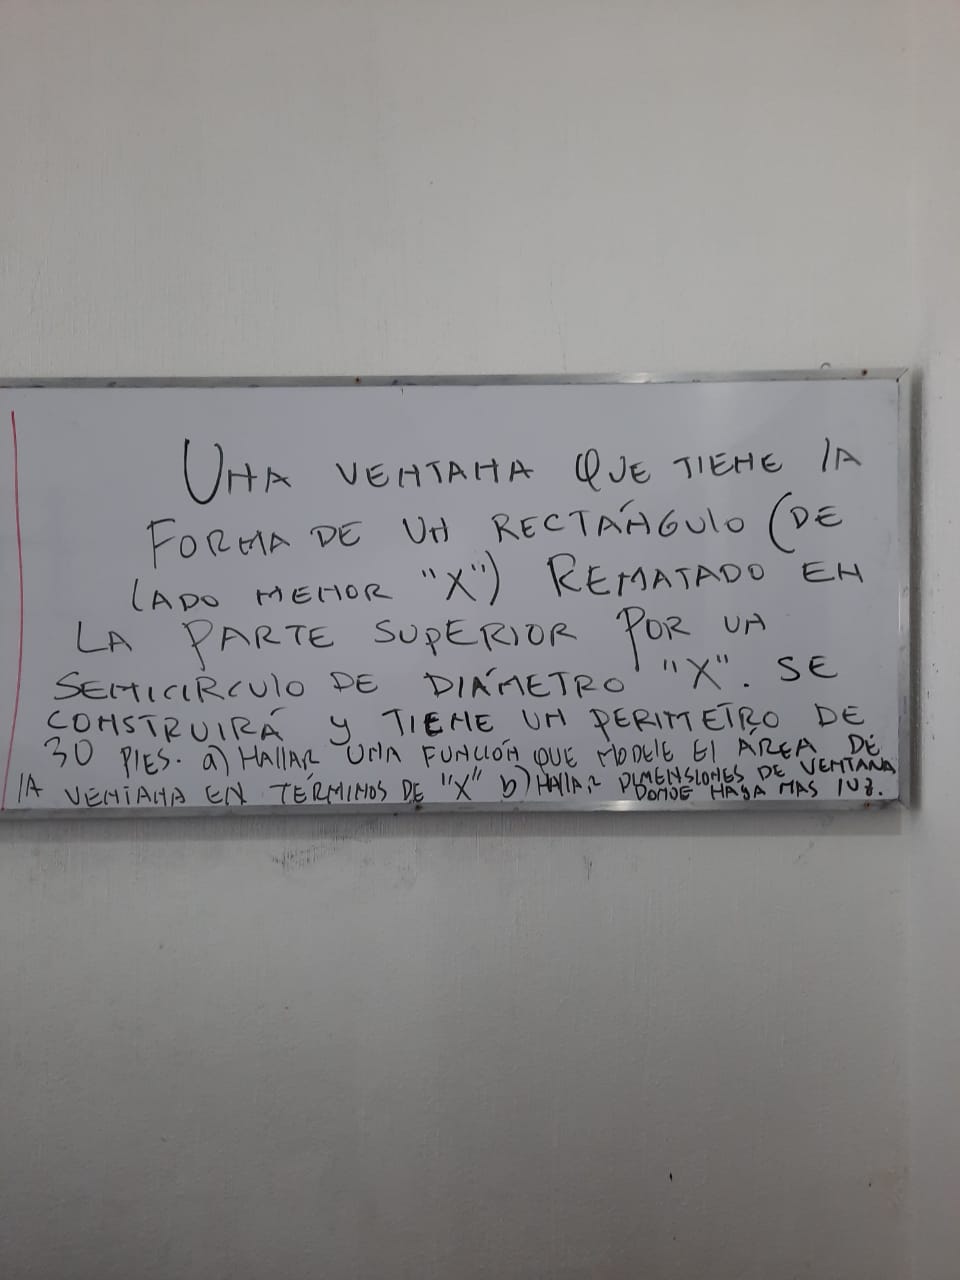 UNA VENTANA QUE TIENE LA
FORMA DE UN RECTÁNGULO (DE
LADO MENOR "X") REMATADO EN
LA PARTE SUPERIOR POR UN
SEMICIRCULO DE DIÁMETRO "X". SE
CONSTRUIRÁ Y TIENE UN PERIMETRO DE
30 PIES. a) HALLAR UNA FUNCIÓN QUE MODELE El ÁREA DE
LA VENTANA EN TÉRMINOS DE "X" b) HALLAR DIMENSIONES DE VENTANA
DONDE HAYA MAS LUZ.